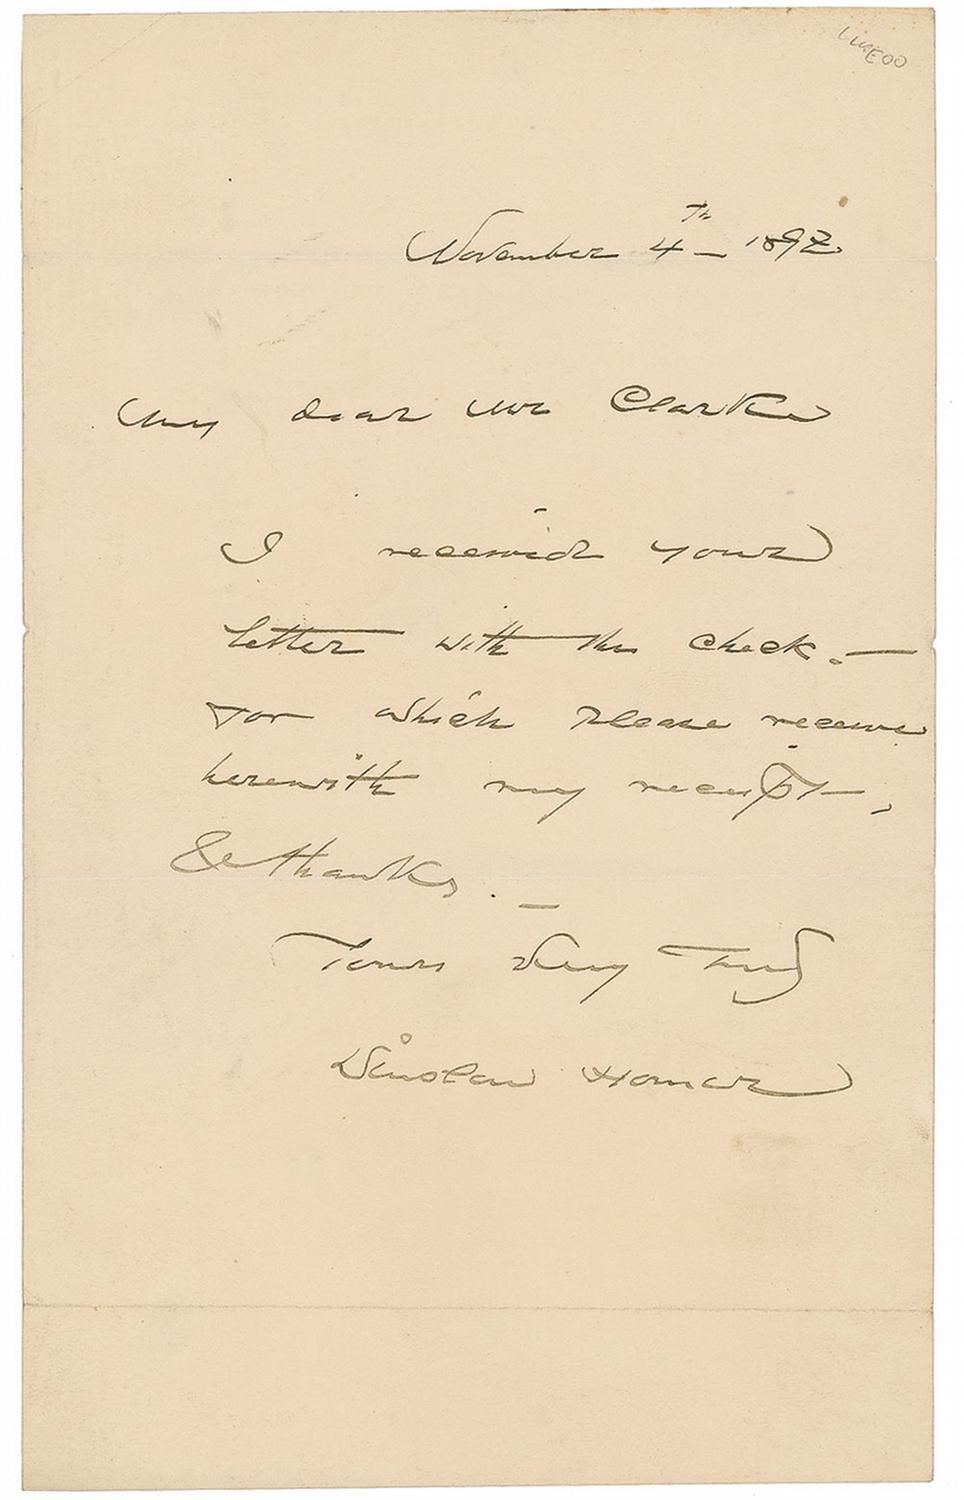 November 4th – 1892
My dear Mr Clarke
I received your
letter with the check. —
for which please receive
herewith my receipt —,
& thanks. —
Yours Very Truly
Winslow Homer